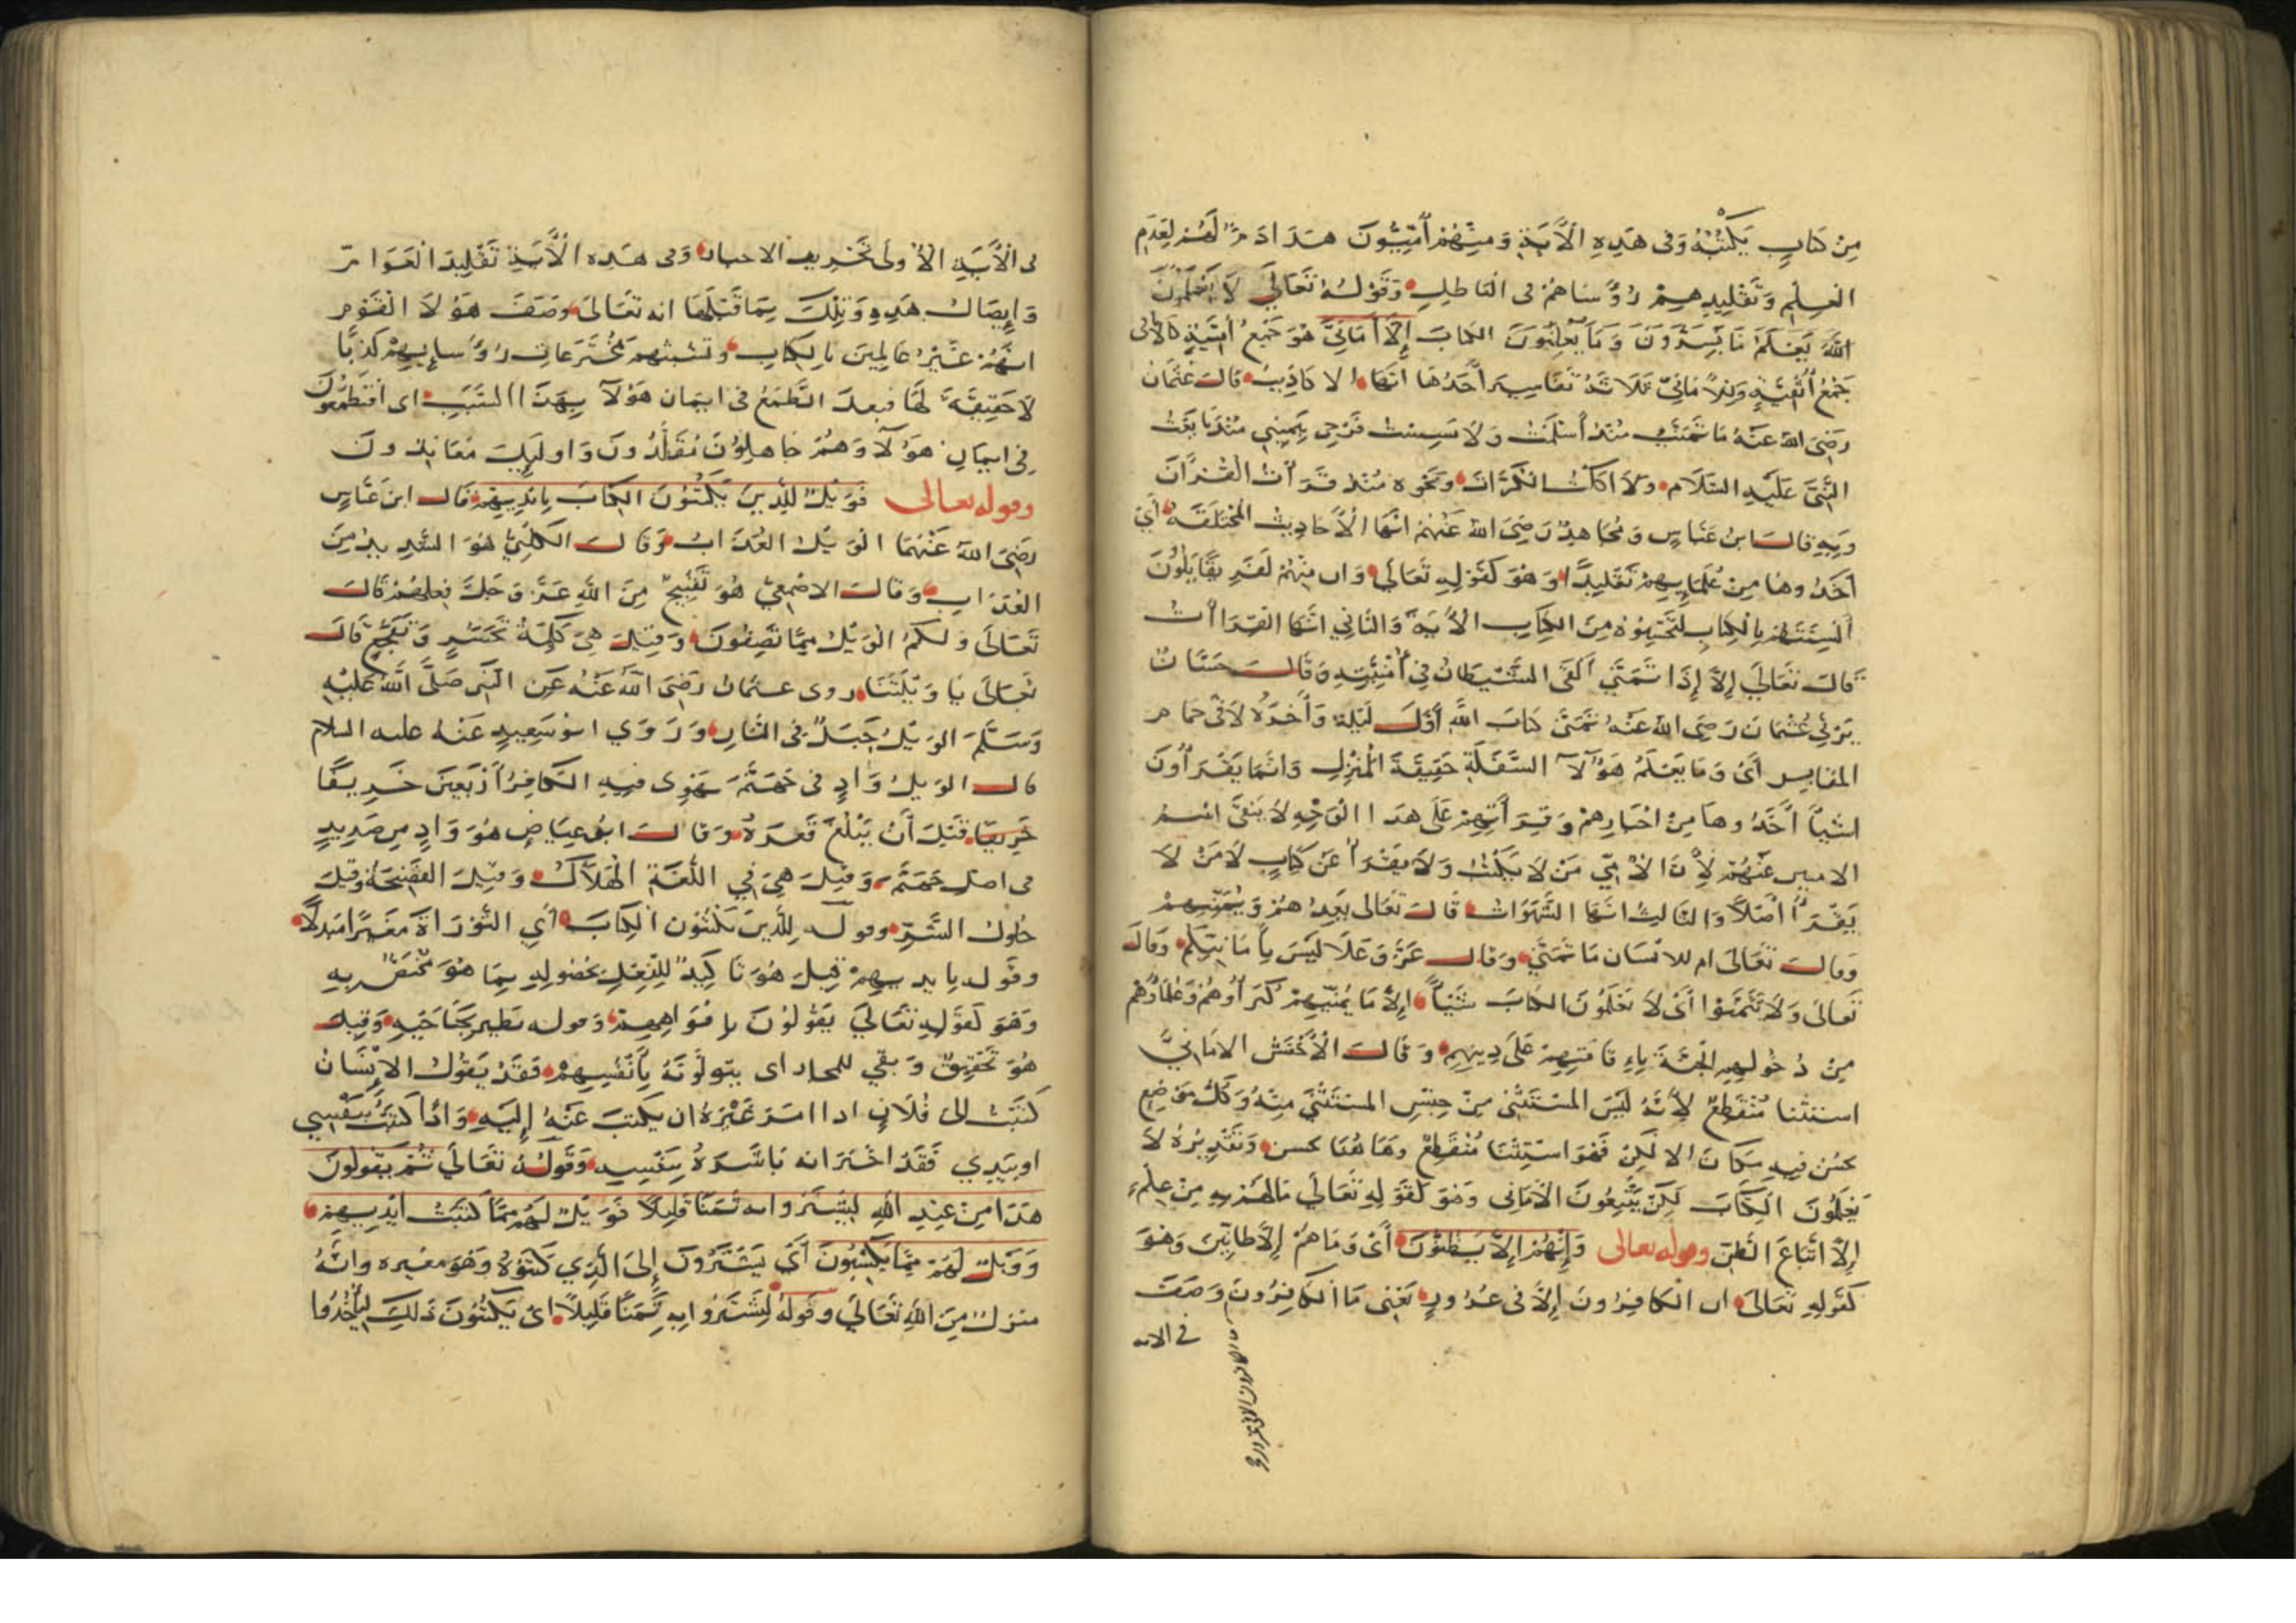 مِنْ كتابٍ يَكْتُبُهُ وَفى هَذِهِ الْآيَةِ وَمِنْهُمْ اُمِّيُّونَ هذا ذمّ لَهُمْ لِعَدَمِ
العِلْمِ وَتَقْلِيدِهِمْ رُؤَسَاهُمْ فى الباطلِ وَقَوْلُهُ تَعَالَى لَا يَعْلَمُونَ
اللَّهَ يَعْلَمُ مَا يُسِرُّونَ وَمَا يُعْلِنُونَ الكتابَ إِلَّا أَمَانِيَّ هُوَ جَمْعُ أُمْنِيَّةٍ كالأثافى
جَمْعُ أُثْفِيَّةٍ وَللأمانِيّ ثَلَاثَةُ تَفَاسِيرَ أَحَدُهَا انها الاكاذيبُ قالَ عُثمانُ
رَضِىَ اللَّهُ عَنْهُ مَا تَمَنَّيْتُ مُنْذُ أَسْلَمْتُ وَلَا مَسِسْتُ فَرْجِى بِيَمِينِي مُنْذُ بايَعْتُ
النَّبِىَّ عَلَيْهِ السَّلَام وَلَا أكلتُ الكرّاث ونحوه مُنْذُ قَرَأْتُ الْقُرْآنَ
وَبِهِ قالَ ابنُ عَبَّاسٍ وَمُجَاهِدٌ رَضِىَ اللَّهُ عَنْهُمْ انَّهَا الْأَحَادِيثُ المُخْتَلَقَةُ أَىْ
أَخَذُوهَا مِنْ عُلَمَايِهِمْ تَقْلِيدًا وَهُوَ كَقَوْلِهِ تَعَالَى وان مِنْهُمْ لَفَرِيقًا يَلْوُنَ
أَلْسِنَتَهُمْ بِالْكِتَابِ لِتَحْسَبُوهُ مِنَ الْكِتَابِ الْآيَةَ وَالثَّانِي انَّهَا القِرَاأتُ
قالَ تَعَالَى إِلَّا إِذَا تَمَنَّى أَلْقَى الشَّيْطَانُ فِي أُمْنِيَّتِهِ وَقَالَ حَسَّانُ
يَرْثِي عُثْمَانَ رَضِىَ اللَّهُ عَنْهُ تَمَنَّى كتابَ اللَّهِ أَوَّلَ لَيْلَةٍ وَآخِرَهُ لَاقَى حمام
المقادير أَىْ وَمَا يَعْلَمُ هَؤُلَآ السَّفَلَةُ حَقِيقَةَ الْمُنْزَلِ وَانَّمَا يَقْرَأُونَ
اشيآ أَخَذُوهَا مِنْ احْبَارِهِمْ وَقِرَاءَتِهِمْ عَلَى هَذَا الْوَجْهِ لَا يَنْفَى اسْمَ
الاميين عَنْهُمْ لِأَنَّ الْأُمِّيَّ مَنْ لَا يَكْتُبُ وَلَا يَقْرَأُ عَنْ كِتَابٍ لَا مَنْ لَا
يَقْرَأُ أَصْلًا وَالثالثُ انها الشَّهَوَاتُ قَالَ تَعَالَى يَعِدُهُمْ وَيُمَنِّيهِمْ
وَقَالَ تَعَالَى ام للانْسَان مَا تَمَنَّى وَقَالَ عَزَّ وَعَلَا لَيْسَ بِأَمَانِيِّكُمْ وَقَالَ
تَعَالَى وَلَا تَتَمَنَّوْا أَىْ لَا يَعْلَمُونَ الكتابَ شَيْئاً إِلَّا مَا يُمَنِّيهِمْ كُبَرَاؤُهُمْ وَعُلَمَاؤُهُمْ
مِنْ دُخُولِهِمِ الْجَنَّةَ بِإِقَامَتِهِمْ عَلَى دِينِهِمْ وَقَالَ الْأَخْفَشُ الامَانِيَّ
استثنا مُنْقَطِعٌ لِأَنَّهُ لَيْسَ المسْتَثْنَى مِنْ جِنْسِ المسْتَثْنَى مِنْهُ وَكُلُّ مَوْضِعٍ
حسُن فِيهِ مَكَانَ إلا لَكِنْ فَهُوَ اسْتِثْنَا مُنْقَطِعٌ وَهَا هُنَا حسن وَتَقْدِيرُهُ لَا
يَعْلَمُونَ الْكِتَابَ لَكِنْ يَتَّبِعُونَ الْأَمَانِى وَهُوَ كَقَوْلِهِ تَعَالَى مَا لَهُمْ بِهِ مِنْ عِلْمٍ
إِلَّا اتِّبَاعَ الظَّنِّ وقوله تعالى وَإِنْ هُمْ إِلَّا يَظُنُّونَ أَىْ وَمَا هُمْ إِلَّا ظَانِّينَ وَهُوَ
كَقَوْلِهِ تَعَالَى ان الْكَافِرُونَ إِلَّا فى غُرُورٍ يَعْنِى مَا الْكَافِرُونَ وَصَفَ
فى الايه
فى الْآيَةِ الْأُولَى تَحْرِيف الاحبار وَفى هَذِهِ الْآيَةِ تَقْلِيدَ الْعَوَامّ
وَإِيصَالُ هَذِهِ وَتِلْكَ بِمَا قَبْلَهَا انه تَعَالَى وَصَفَ هَؤُلَا الْقَوْم
انَّهُمْ غَيْرُ عَالِمِينَ بِالْكِتَابِ وتشبثهم بمُخْتَرَعات رُؤَسايِهِمْ كَذِبًا
لَا حَقِيقَةَ لَهَا فبعدَ الطَّمَعُ فى ايمان هَؤُلَآ بِهَذَا السَّبَبِ اى أَفَتَطْمَعُونَ
فِى ايمَانِ هَؤُلَآ وَهُمْ جَاهِلُونَ مُقَلِّدُونَ وَاولَيِكَ مُعَانِدُونَ
وقوله تعالى فَوَيْلٌ لِلَّذِينَ يَكْتُبُونَ الْكِتَابَ بِأَيْدِيهِمْ قَالَ ابنُ عَبَّاسٍ
رَضِىَ اللَّهُ عَنْهُمَا الْوَيْلُ العَذَابُ وَقَالَ الْكَلْبِيُّ هُوَ الشَّدِيدُ مِنَ
العَذَابِ وَقالَ الاصْمَعِيُّ هُوَ تَقْبِيحٌ مِنَ اللَّهِ عَزَّ وَجَلَّ فِعلَهُمْ قَالَ
تَعَالَى وَلَكُمُ الْوَيْلُ مِمَّا تَصِفُونَ وَقِيلَ هِىَ كَلِمَةُ تَحَسُّرٍ وَتَفَجُّعٍ قَالَ
تَعَالَى يَا وَيْلَتَنَا روى عثمانُ رَضِىَ اللَّهُ عَنْهُ عَنِ النَّبِى صَلَّى اللَّهُ عَلَيْهِ
وَسَلَّمَ الوَيْلُ جَبَلٌ فى النَّارِ وَرَوَى ابو سَعِيدٍ عَنْهُ عليه السلام
قال الوَيْلُ وَادٍ فى جَهَنَّمَ يَهْوِى فِيهِ الْكَافِرُ أَرْبَعِينَ خَرِيفًا
خَرِيفًا قَبْلَ أَنْ يَبْلُغَ قَعْرَهُ وَقَالَ ابُو عِيَاضٍ هُوَ وَادٍ مِن صَدِيدٍ
فى اصلِ جَهَنَّمَ وَقِيلَ هِىَ فِي اللُّغَةِ الْهَلَاكُ وَقِيلَ الفَضِيحَةُ وَقِيلَ
حُلولُ الشَّرِّ وقوله لِلَّذِينَ يَكْتُبُونَ الْكِتَابَ أَىِ التَّوْرَاةَ مُغَيَّرًا مُبَدَّلًا
وقَوله بأيديهِمْ قِيلَ هُوَ تَاكِيدٌ لِلْفِعْلِ بِحُصُولِهِ بِمَا هُوَ مُخْتَصٌّ بِهِ
وَهُوَ كَقَوْلِهِ تَعَالَى يَقُولُونَ بِافْوَاهِهِمْ وَقوله يَطِيرُ بِجَنَاحَيْهِ وَقِيلَ
هُوَ تَحْقِيقٌ وَنفى للمجاز اى يتولّونَهُ بِأَنْفُسِهِمْ فَقَدْ يَقُولُ الْإِنْسَانُ
كَتَبْتُ الى فُلَانٍ اذا امَرَ غَيْرَهُ ان يَكْتُبَ عَنْهُ إِلَيْهِ وَاذَا كَتَبْتُ بِنَفْسِي
او بِيَدِي فَقَدْ اخْبَرَ انه بَاشَرَهُ بِنَفْسِهِ وَقَوْلُهُ تَعَالَى ثُمَّ يَقُولُونَ
هَذَا مِنْ عِنْدِ اللَّهِ لِيَشْتَرُوا به ثَمَنًا قَلِيلًا فَوَيْلٌ لَهُمْ مِمَّا كَتَبَتْ أَيْدِيهِمْ
وَوَيْلٌ لَهُمْ مِمَّا يَكْسِبُونَ أَىْ يُشِيرُونَ إِلَى الَّذِي كَتَبُوهُ وَهُوَ مغيره وانَّهُ
منزلٌ مِنَ اللَّهِ تَعَالَى وقَولهُ لِيَشْتَرُوا بِهِ ثَمَنًا قَلِيلًا اىْ يَكْتُبُونَ ذَلِكَ لِيَأْخُذُوا